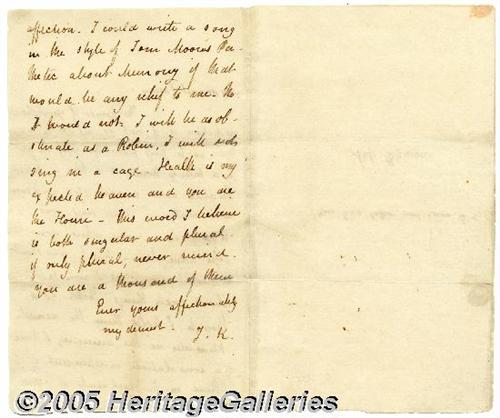 affection. I could write a song
in the style of Tom Moore's Pa-
thetic about Memory if that
would be any relief to me. No
I would not. I will be as ob-
stinate as a Robin, I will not
sing in a cage. Health is my
expected heaven and you are
the Houri - this word I believe
is both singular and plural
if only plural, never mind.
you are a thousand of them
Ever yours affectionately
my dearest.
J. K.
©2005 HeritageGalleries